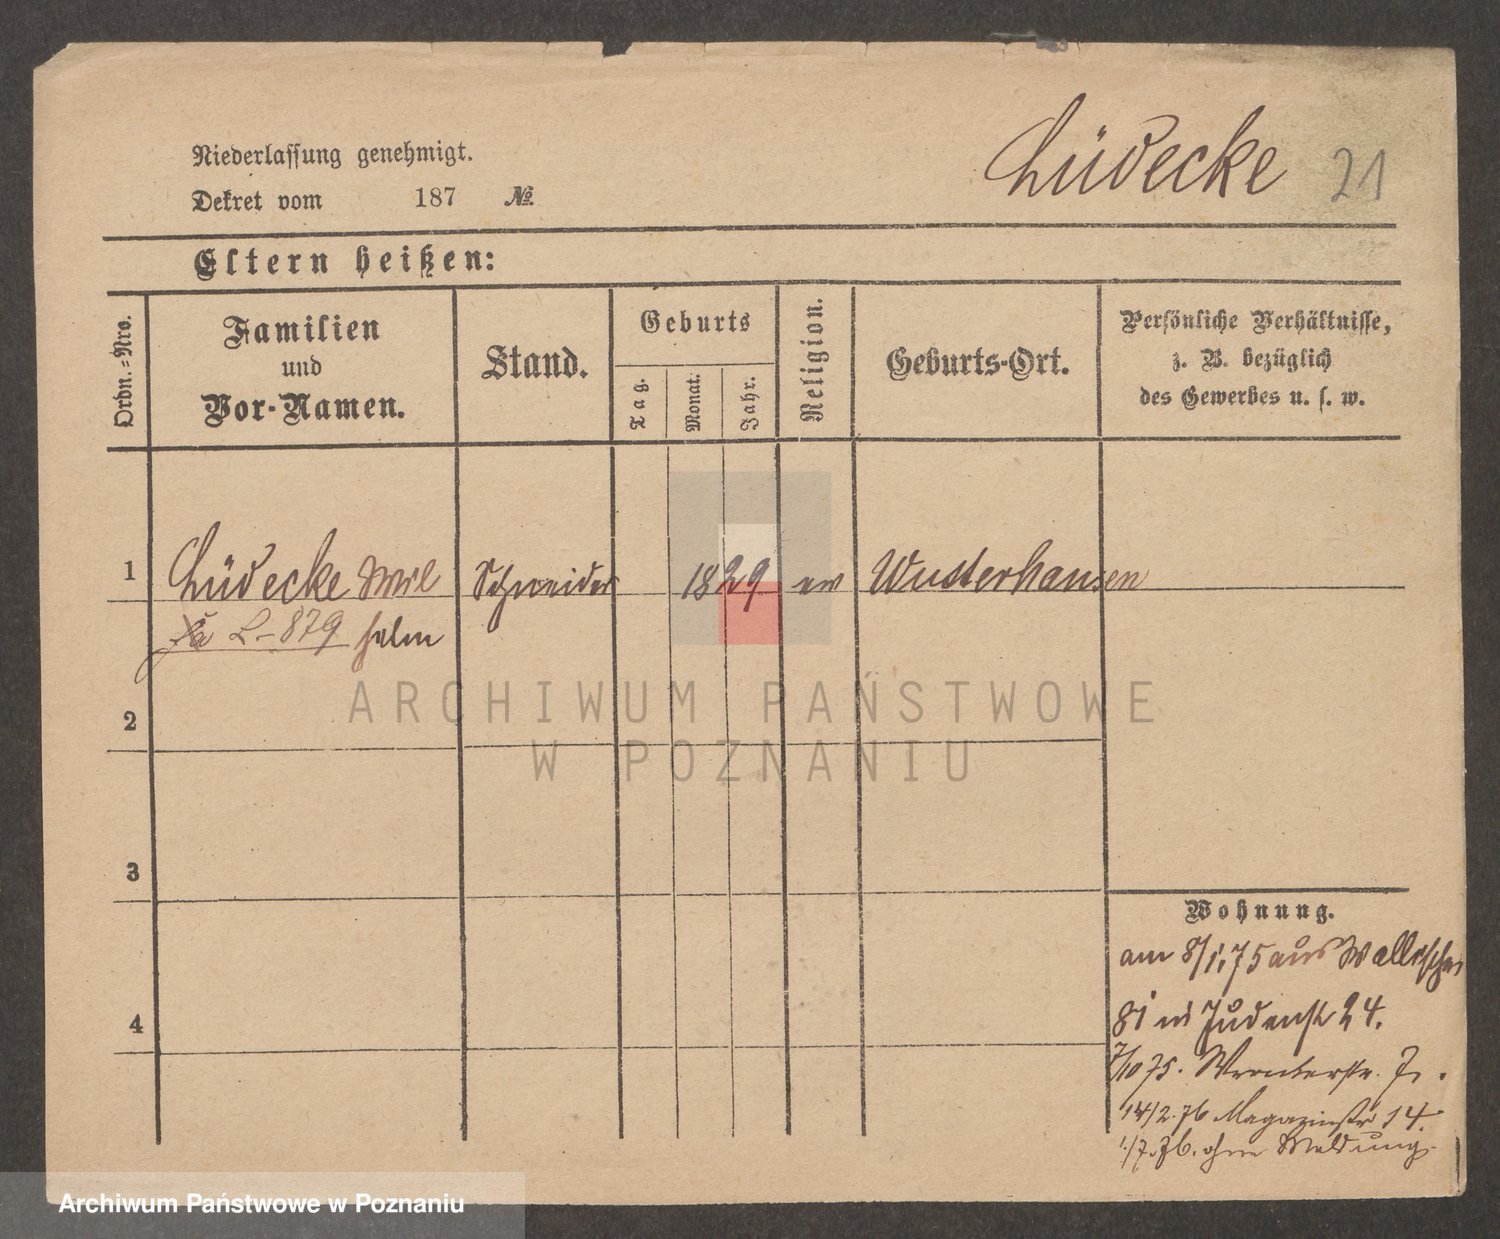 Niederlassung genehmigt.
Dekret vom 187 №
Lüdecke 21
Eltern heißen:
Ordn.-Nro.
Familien
und
Vor-Namen.
Stand.
Geburts
Tag.
Monat.
Jahr.
Religion.
Geburts-Ort.
Persönliche Verhältnisse,
z. B. bezüglich
des Gewerbes u. s. w.
1 Lüdecke Wil Schneider 1829 ev Wusterhausen
L-879 helm
2
3
4
Wohnung.
am 8/1.75 aus Wallischei
81 in Judenstr 24.
7/10 75. Wronkerstr. 7.
14/2.76 Magazinstr 14.
1/7.76. ohne Meldung.
ARCHIWUM PAŃSTWOWE
W POZNANIU
Archiwum Państwowe w Poznaniu